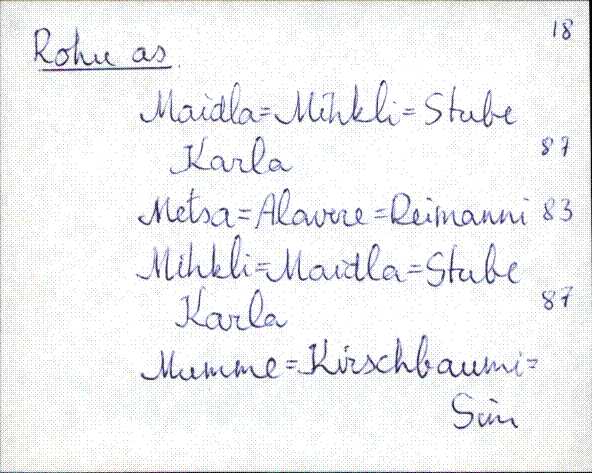 18
Rohu as.
Maidla=Mihkli=Stube
Karla 87
Metsa=Alavere=Reimanni 83
Mihkli=Maidla=Stube
Karla 87
Mumme=Kirschbaumi=
Siin